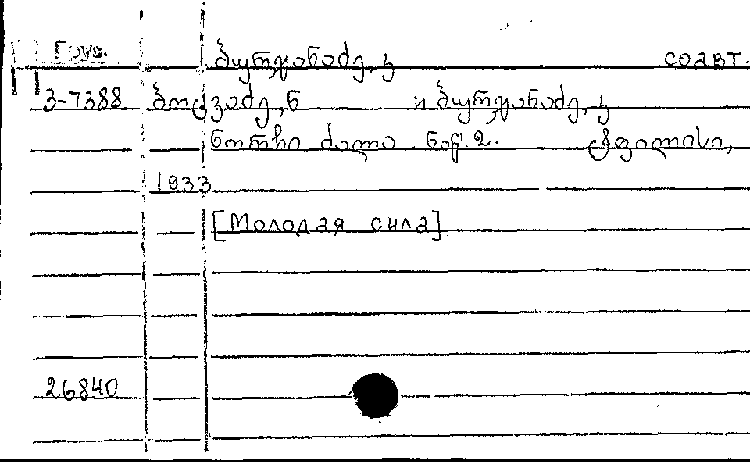 Груз. ბურჯანაძე, კ соавт.
3-7388 ბოცვაძე, ნ и ბურჯანაძე, კ
ნორჩი ძალა ნაწ. 2. ტფილისი,
1933
[Молодая сила]
26840